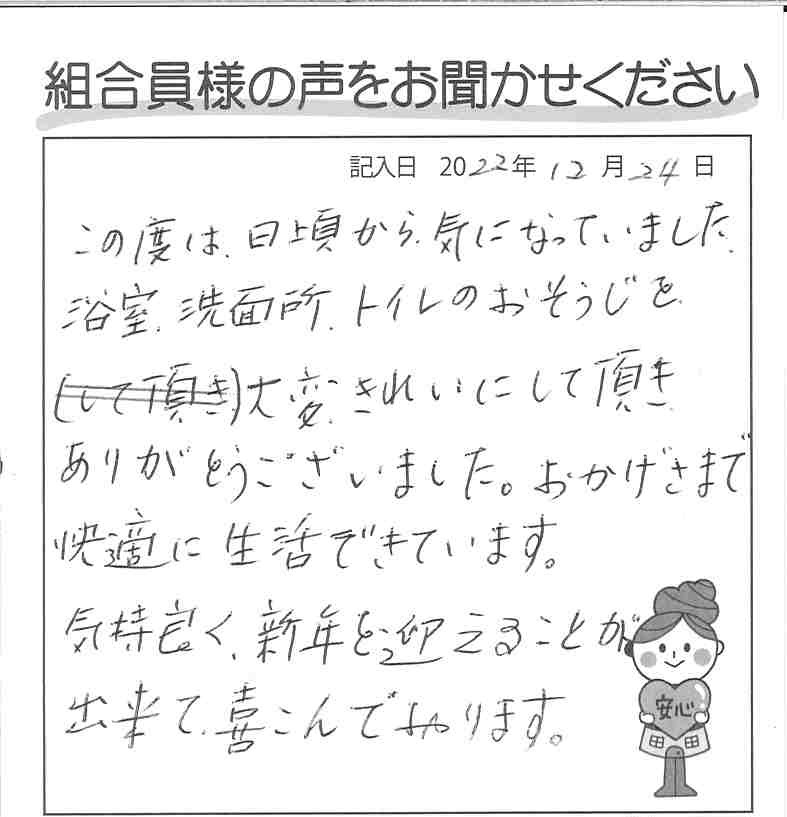 組合員様の声をお聞かせください
記入日 2022年 12月 24日
この度は、日頃から、気になっていました、
浴室、洗面所、トイレのおそうじを、
(して頂き)大変、きれいにして頂き
ありがとうございました。おかげさまで
快適に生活できています。
気持良く、新年を迎えることが
出来て、喜こんでおります。
安心